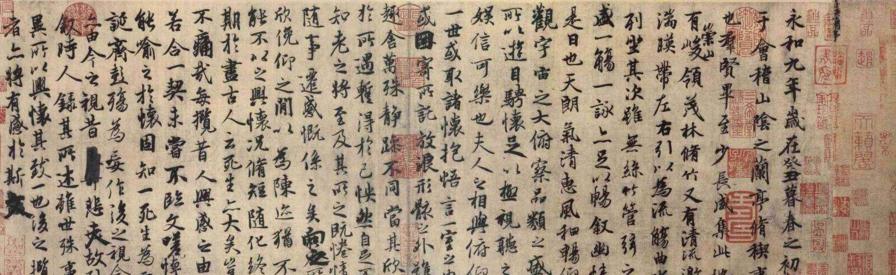 永和九年歲在癸丑暮春之初
于會稽山陰之蘭亭脩稧
也群賢畢至少長咸集此
有崇山峻領茂林脩竹又有清流
湍暎帶左右引以為流觴曲
列坐其次雖無絲竹管弦之
盛一觴一詠亦足以暢敘幽情
是日也天朗氣清惠風和暢仰
觀宇宙之大俯察品類之盛
所以遊目騁懷足以極視聽之
娛信可樂也夫人之相與俯仰
一世或取諸懷抱悟言一室之內
或因寄所託放浪形骸之外雖
趣舍萬殊靜躁不同當其欣
於所遇暫得於己怏然自足
知老之將至及其所之既惓情
隨事遷感慨係之矣向之
欣俛仰之閒以為陳迹猶不
能不以之興懷況脩短隨化終
期於盡古人云死生亦大矣豈
不痛哉每攬昔人興感之由
若合一契未嘗不臨文嗟悼
能喻之於懷固知一死生為
誕齊彭殤為妄作後之視今
亦由今之視昔悲夫故列
敘時人錄其所述雖世殊事
異所以興懷其致一也後之攬
者亦將有感於斯文